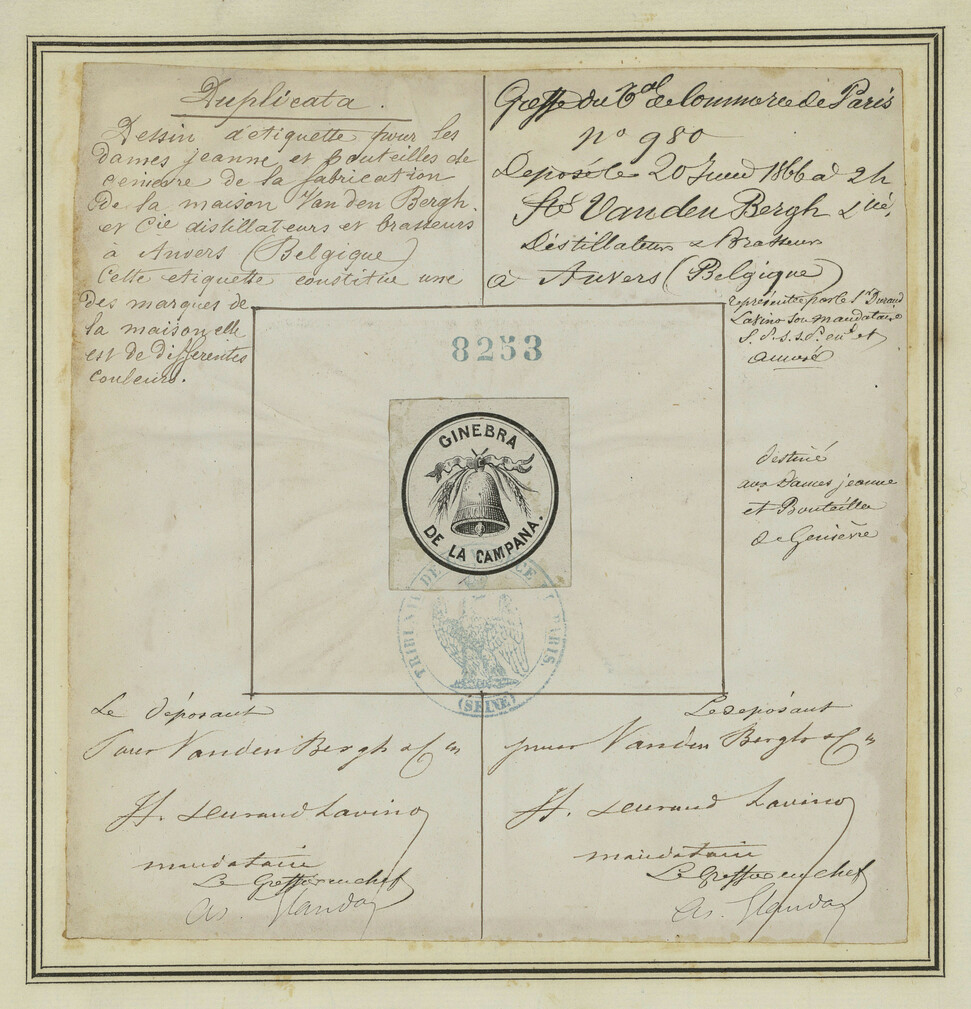 Duplicata.
Dessin d'étiquette pour les
dames jeanne et bouteilles de
genievre de la fabrication
de la maison Van den Bergh
et Cie distillateurs et brasseurs
à Anvers (Belgique)
Cette etiquette constitue une
des marques de
la maison elle
est de differentes
couleurs.
Greffe du Tal de Commerce de Paris
no 980
Deposé le 20 1866 à 2h
Sté Vanden Bergh & Cie,
Distillateurs & Brasseurs
à Anvers (Belgique)
représentée par le Sr Durand
Lavino son mandataire
S. P. s. s. d. en et
annexé
destiné
aux Dames jeanne
et Bouteilles
de Genièvre
8253
GINEBRA
DE LA CAMPANA.
TRIBUNAL DE COMMERCE DE PARIS.
(SEINE)
Le déposant
Pour Vanden Bergh & Cie
H. Durand Lavino
mandataire
Le Greffier en chef
Le déposant
pour Vanden Bergh & Cie
H. Durand Lavino
mandataire
Le Greffier en chef